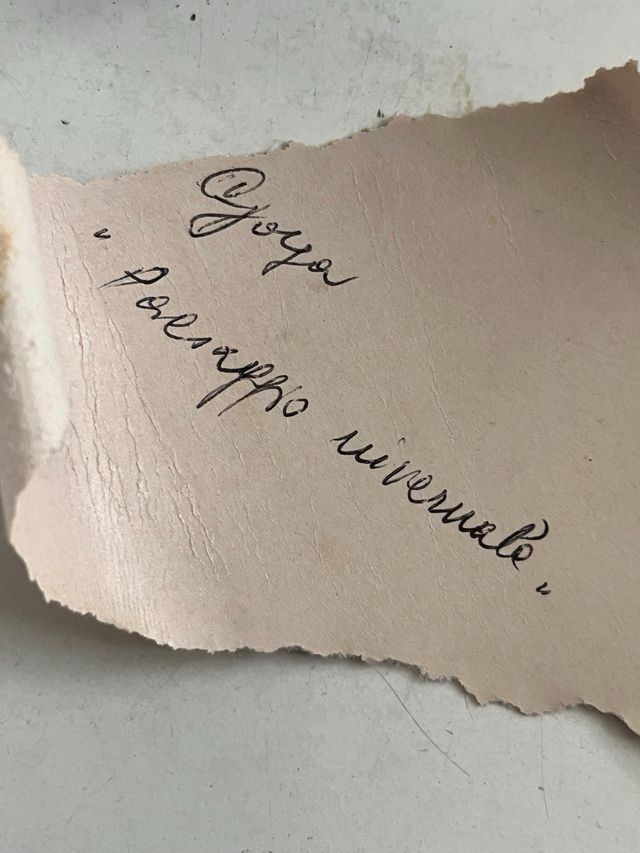 Goya
"Paesaggio invernale"